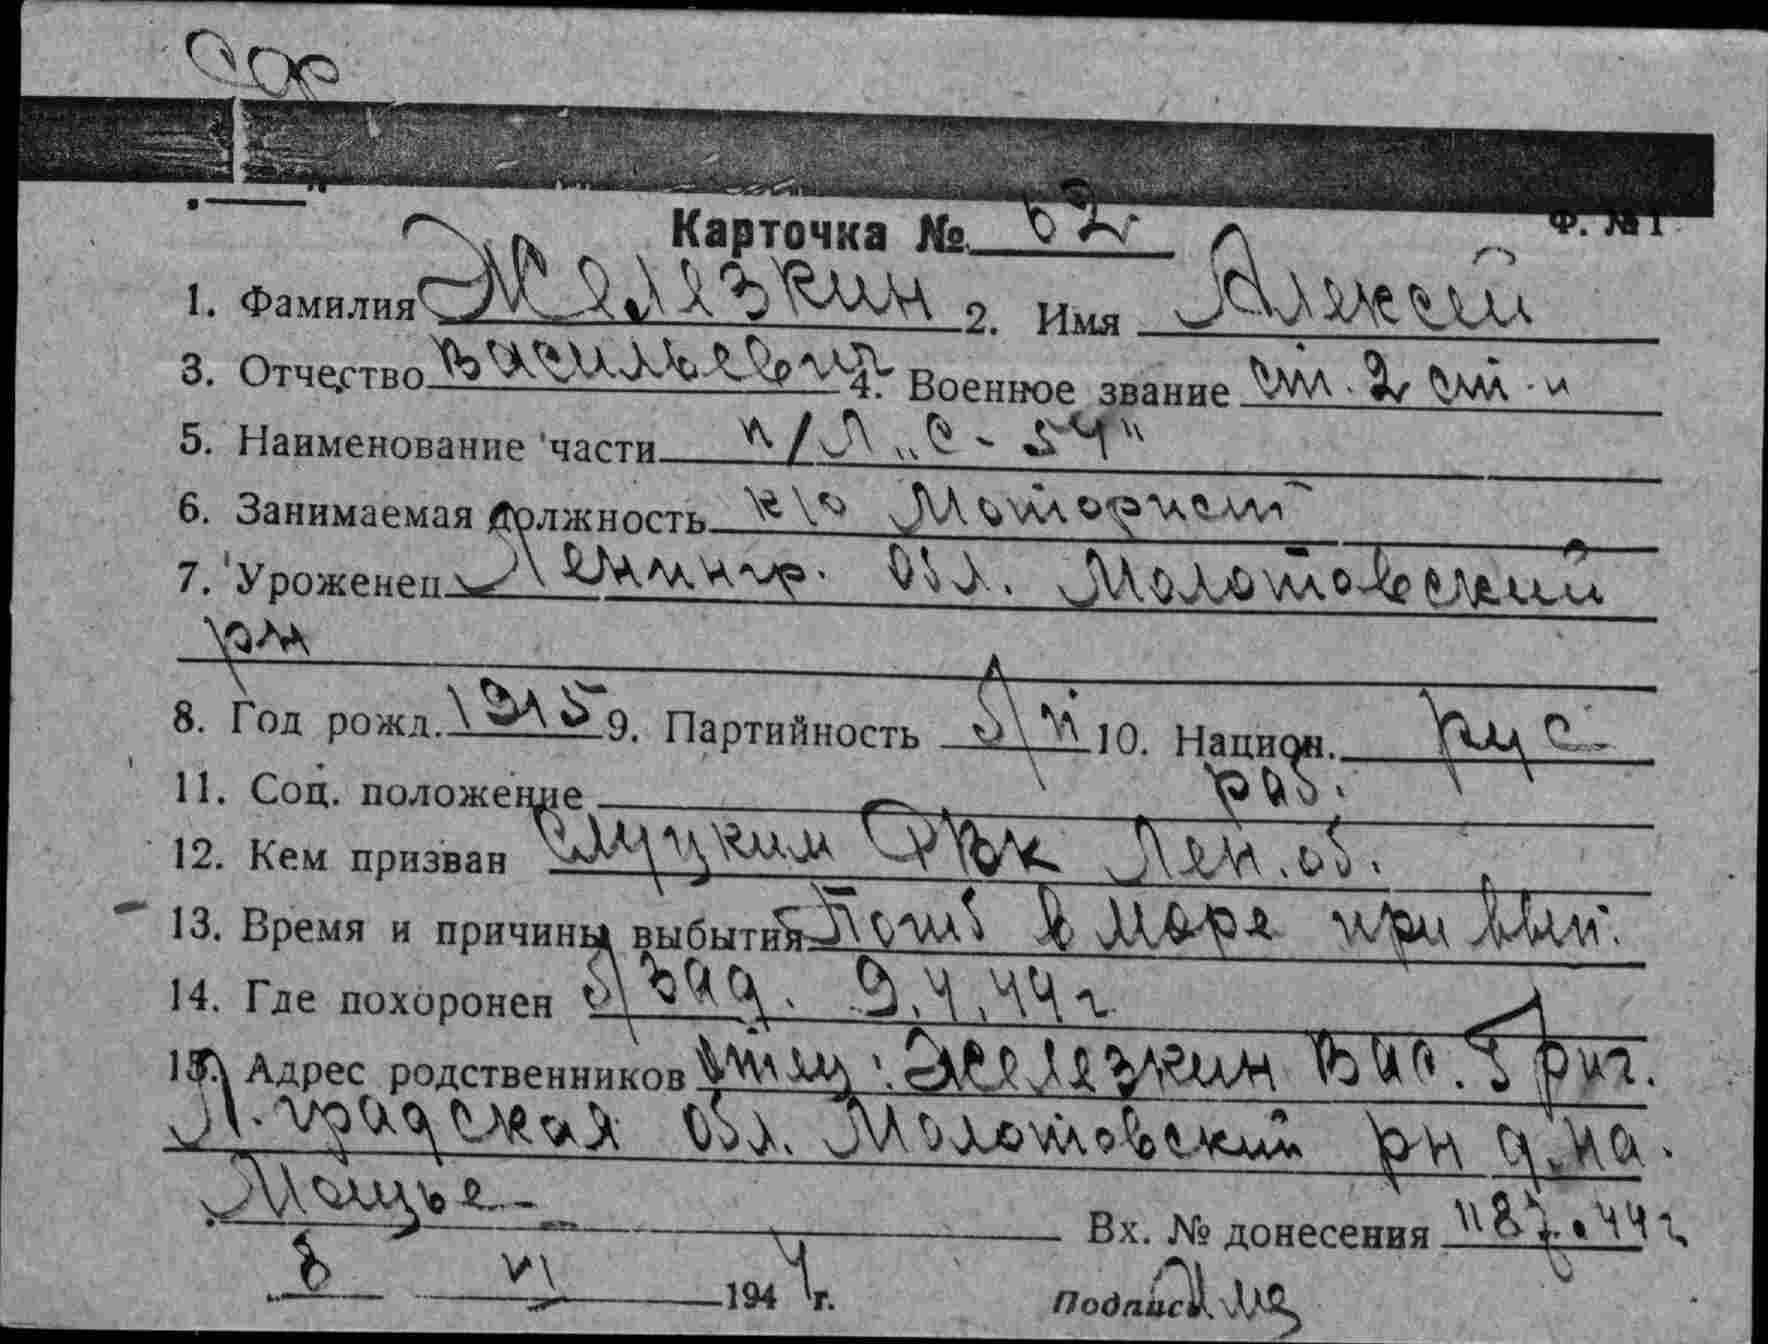 Ф. № 1
Карточка № 62
1. Фамилия Железкин 2. Имя Алексей
3. Отчество Васильевич 4. Военное звание ст. 2 ст-и
5. Наименование части п/л „С-54"
6. Занимаемая должность к/о Моторист
7. Уроженец Ленингр. обл. Молотовский
рн
8. Год рожд. 1915 9. Партийность б/п 10. Национ. рус
11. Соц. положение раб.
12. Кем призван Слуцким РВК Лен. об.
13. Время и причины выбытия Погиб в море при вып.
14. Где похоронен б/зад. 9.4.44 г
15. Адрес родственников отец: Железкин Вас. Григ.
Л. градская обл. Молотовский рн д. на
Мощье
Вх. № донесения 1187.44 г
8 VI 1944 г. Подпись